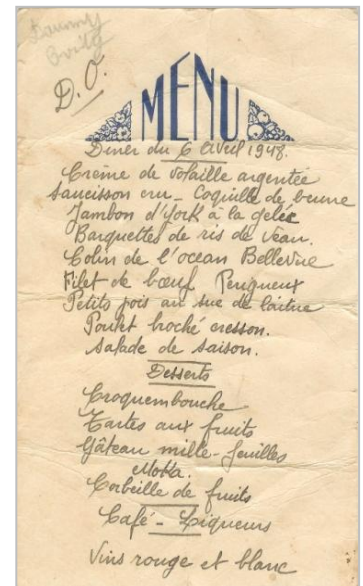 D.O.
MENU
Diner du 6 Avril 1948.
Crème de volaille argentée
Saucisson cru - Coquille de beurre
Jambon d'York à la gelée
Barquettes de ris de veau.
Colin de l'ocean Bellevue
Filet de bœuf Perigueux
Petits pois au suc de laitue
Poulet broché cresson.
Salade de saison.
Desserts
Croquembouche
Tartes aux fruits
Gâteau mille-feuilles
Moka.
Corbeille de fruits
Café - Liqueurs
Vins rouge et blanc